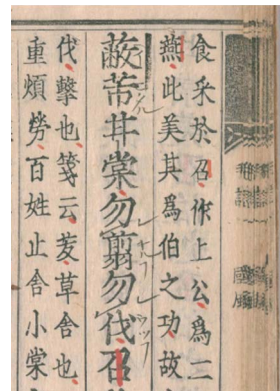 食采於召作上公爲二
燕此美其爲伯之功故
蔽芾甘棠勿翦勿伐召
伐擊也箋云茇草舍也
重煩勞百姓止舍小棠